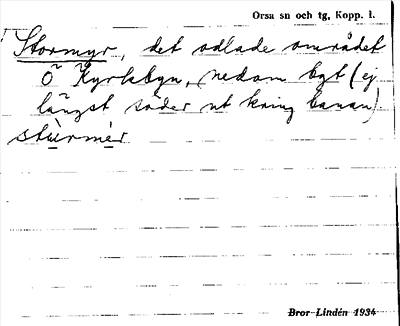 Orsa sn och tg, Kopp. l.
Stormyr, det odlade området
Ö Kyrkbyn, nedom bgt (ej
längst söder ut kring banan).
stùrmèr
Bror Lindén 1934